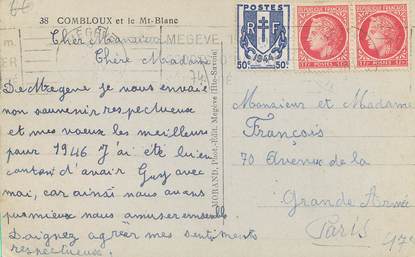 38 COMBLOUX et le Mt-Blanc
Cher Monsieur
Chère Madame
De Megève je nous envoie
mon souvenir respectueux
et mes voeux les meilleurs
pour 1946 J'ai été bien
content d'avoir Guy avec
moi, car ainsi nous avons
pu mieux nous amuser ensemble
Daignez agréer mes sentiments
respectueux.
MORAND, Phot.-Edit. Megève (Hte-Savoie)
MEGEVE
POSTES
RF
50c 50c
Monsieur et Madame
François
70 Avenue de la
Grande Armée
Paris
17e